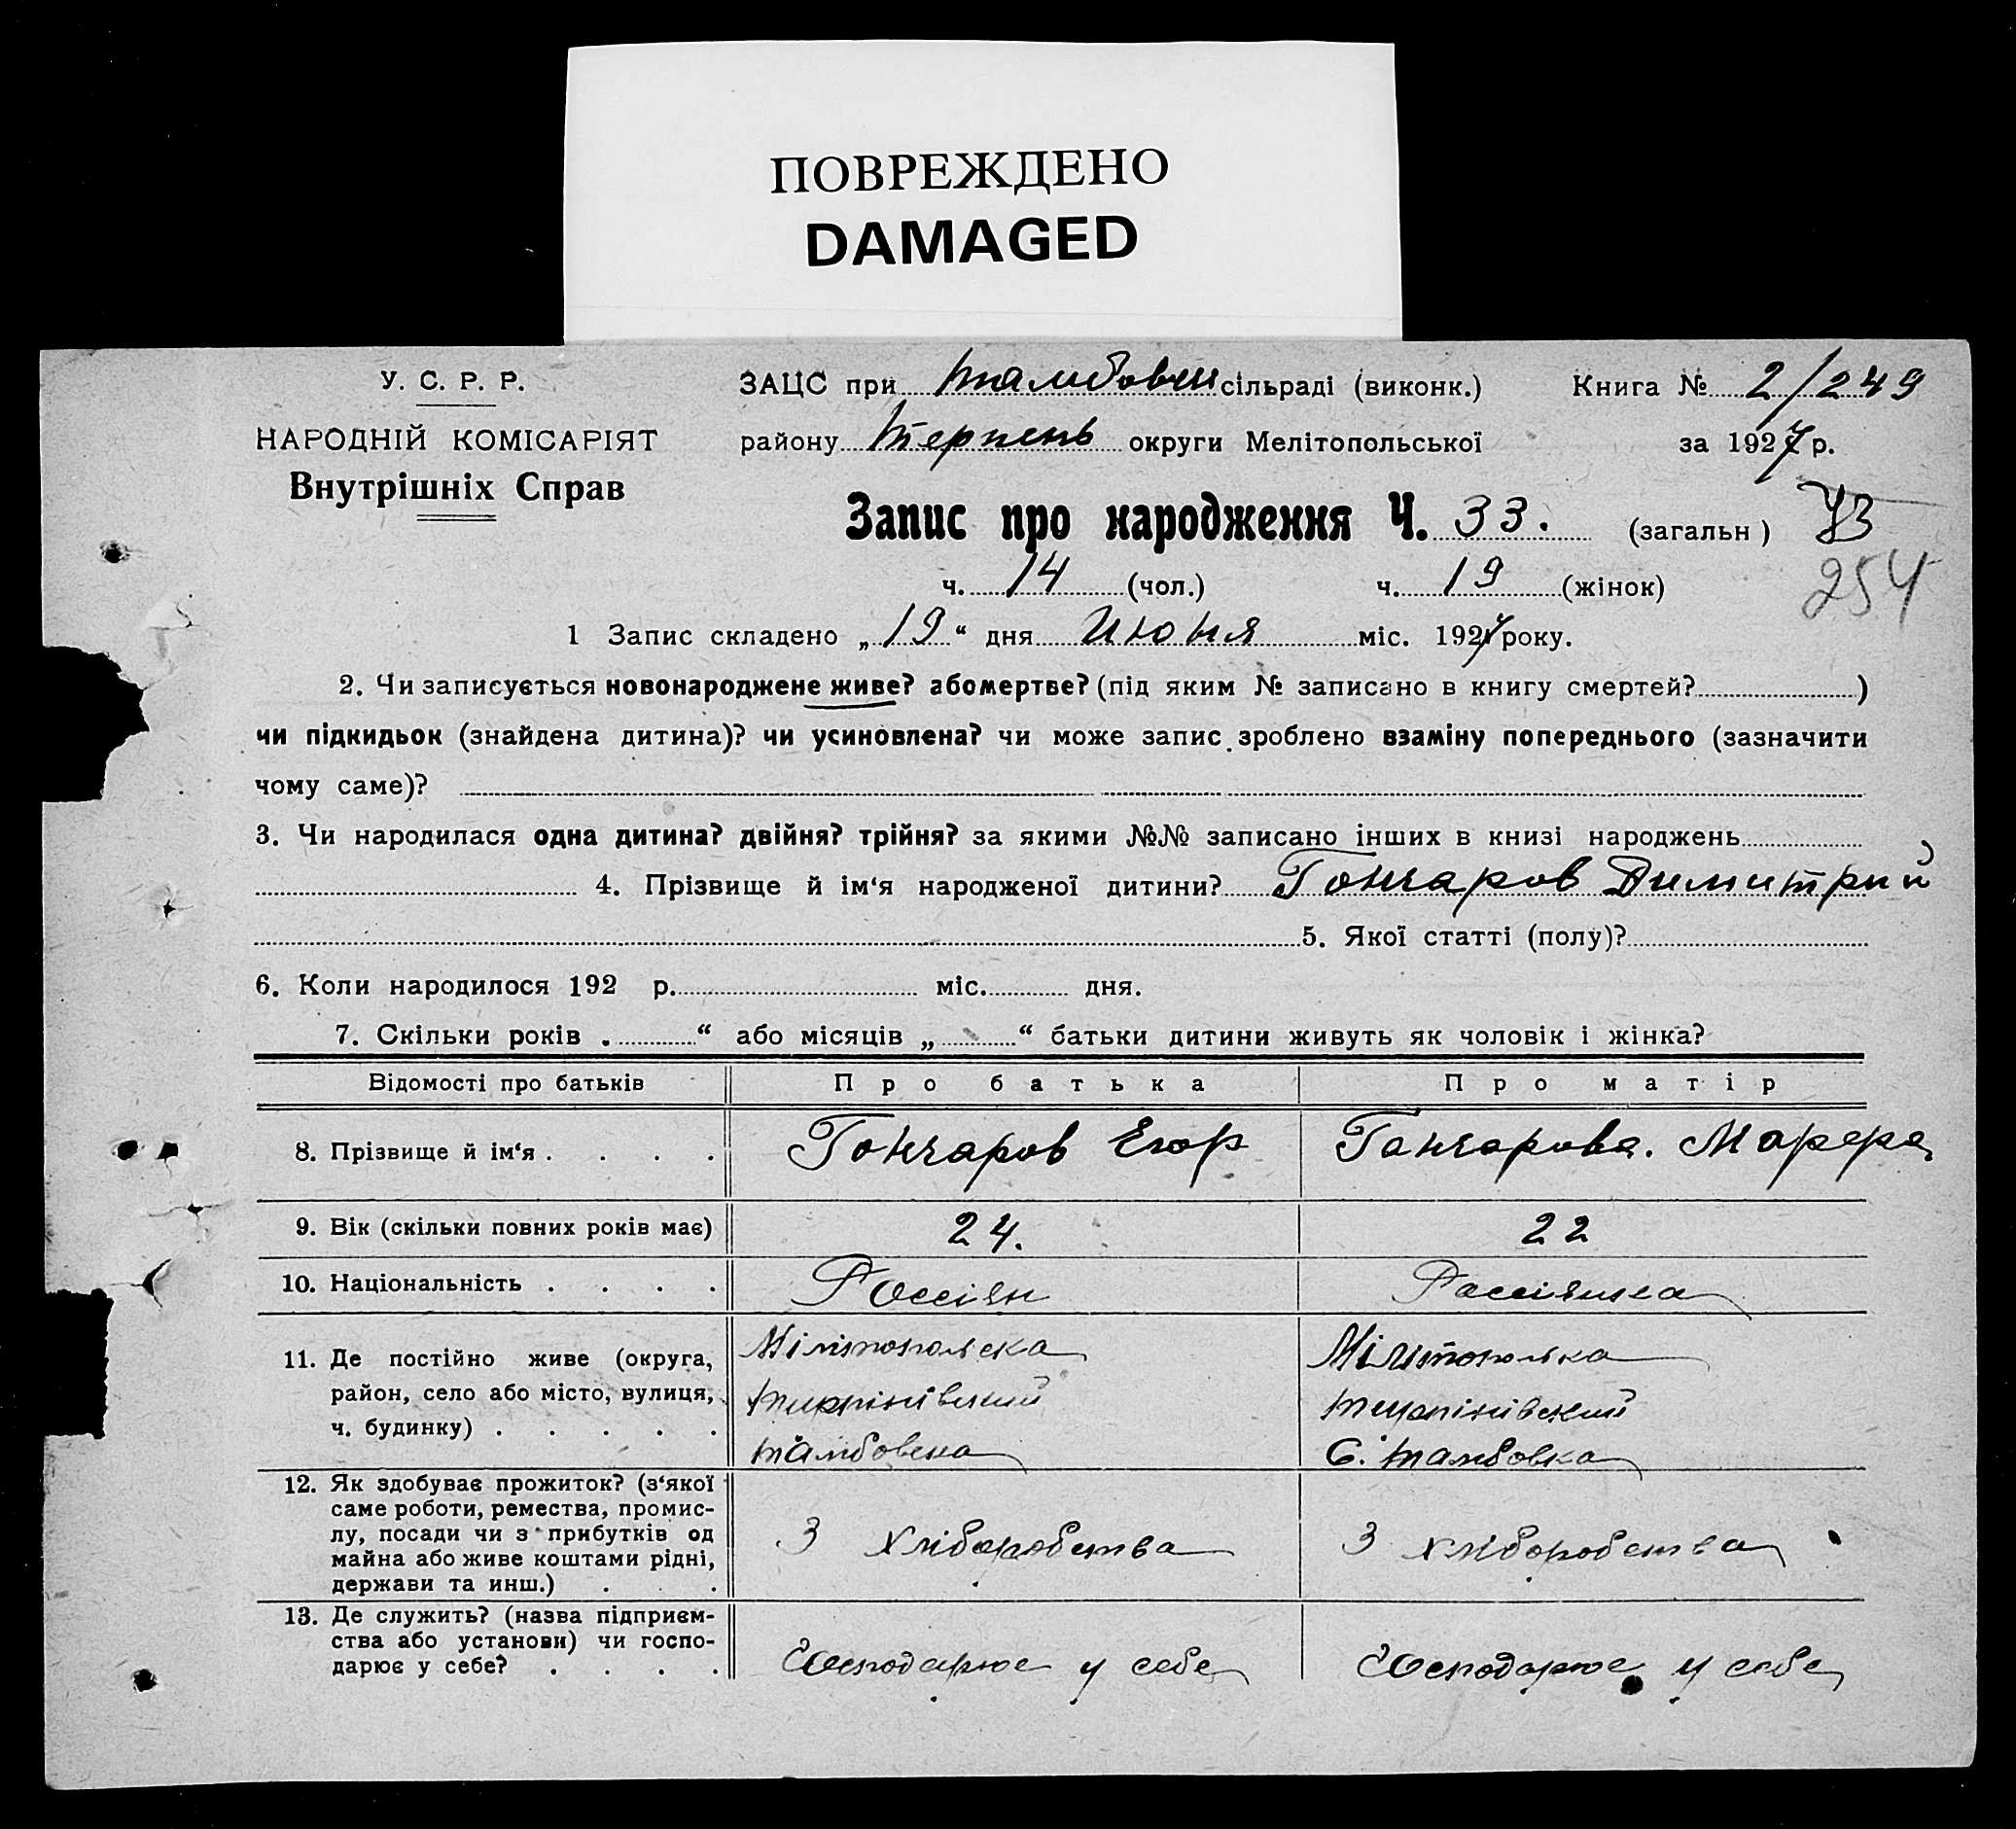 ПОВРЕЖДЕНО
DAMAGED
У. С. Р. Р.
НАРОДНІЙ КОМІСАРІЯТ
Внутрішніх Справ
ЗАЦС при Тамбовск сільраді (виконк.) Книга № 2/249
району Терпень округи Мелітопольської за 1927 р.
Запис про народження Ч. 33. (загальн) 43
ч. 14 (чол.) ч. 19 (жінок) 254
1 Запис складено „19“ дня Июня міс. 1927 року.
2. Чи записується новонароджене живе? або мертве? (під яким № записано в книгу смертей? )
чи підкидьок (знайдена дитина)? чи усиновлена? чи може запис зроблено взаміну попереднього (зазначити
чому саме)?
3. Чи народилася одна дитина? двійня? трійня? за якими №№ записано інших в книзі народжень
4. Прізвище й ім‘я народженої дитини? Гончаров Димитрий
5. Якої статті (полу)?
6. Коли народилося 192 р. міс. дня.
7. Скільки років „ “ або місяців „ “ батьки дитини живуть як чоловік і жінка?
Відомості про батьків Про батька Про матір
8. Прізвище й ім‘я Гончаров Егор Ганчарова. Марфа
9. Вік (скільки повних років має) 24. 22
10. Національність Россіян Россіянка
11. Де постійно живе (округа, Мілітопольска Мілітополька
район, село або місто, вулиця, Терпінівский Терпінівский
ч. будинку) Тамбовка С. Тамбовка
12. Як здобуває прожиток? (з‘якої
саме роботи, ремества, промис-
лу, посади чи з прибутків од З хліборобства З хліборобства
майна або живе коштами рідні,
держави та инш.)
13. Де служить? (назва підприєм-
ства або установи) чи госпо-
дарює у себе? Господарює у себе Господарює у себе